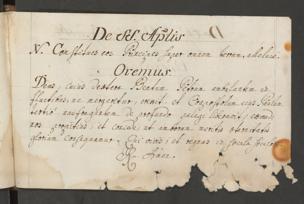 De SS. Aplis
V. Constitues eos Principes super omnem terram, alleluia.
Oremus.
Deus, cujus dextera Beatum Petrum ambulantem in
fluctibus, ne mergeretur, erexit, et Coapostolum ejus Paulum
tertio naufragantem de profundo pelagi liberavit;
nos propitius, et concede, ut amborum meritis aeternitatis
gloriam consequamur. Qui vivis, et regnas in secula
R. Amen.